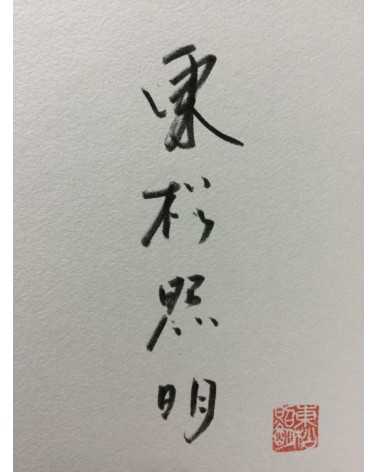 東松照明
東松
照明